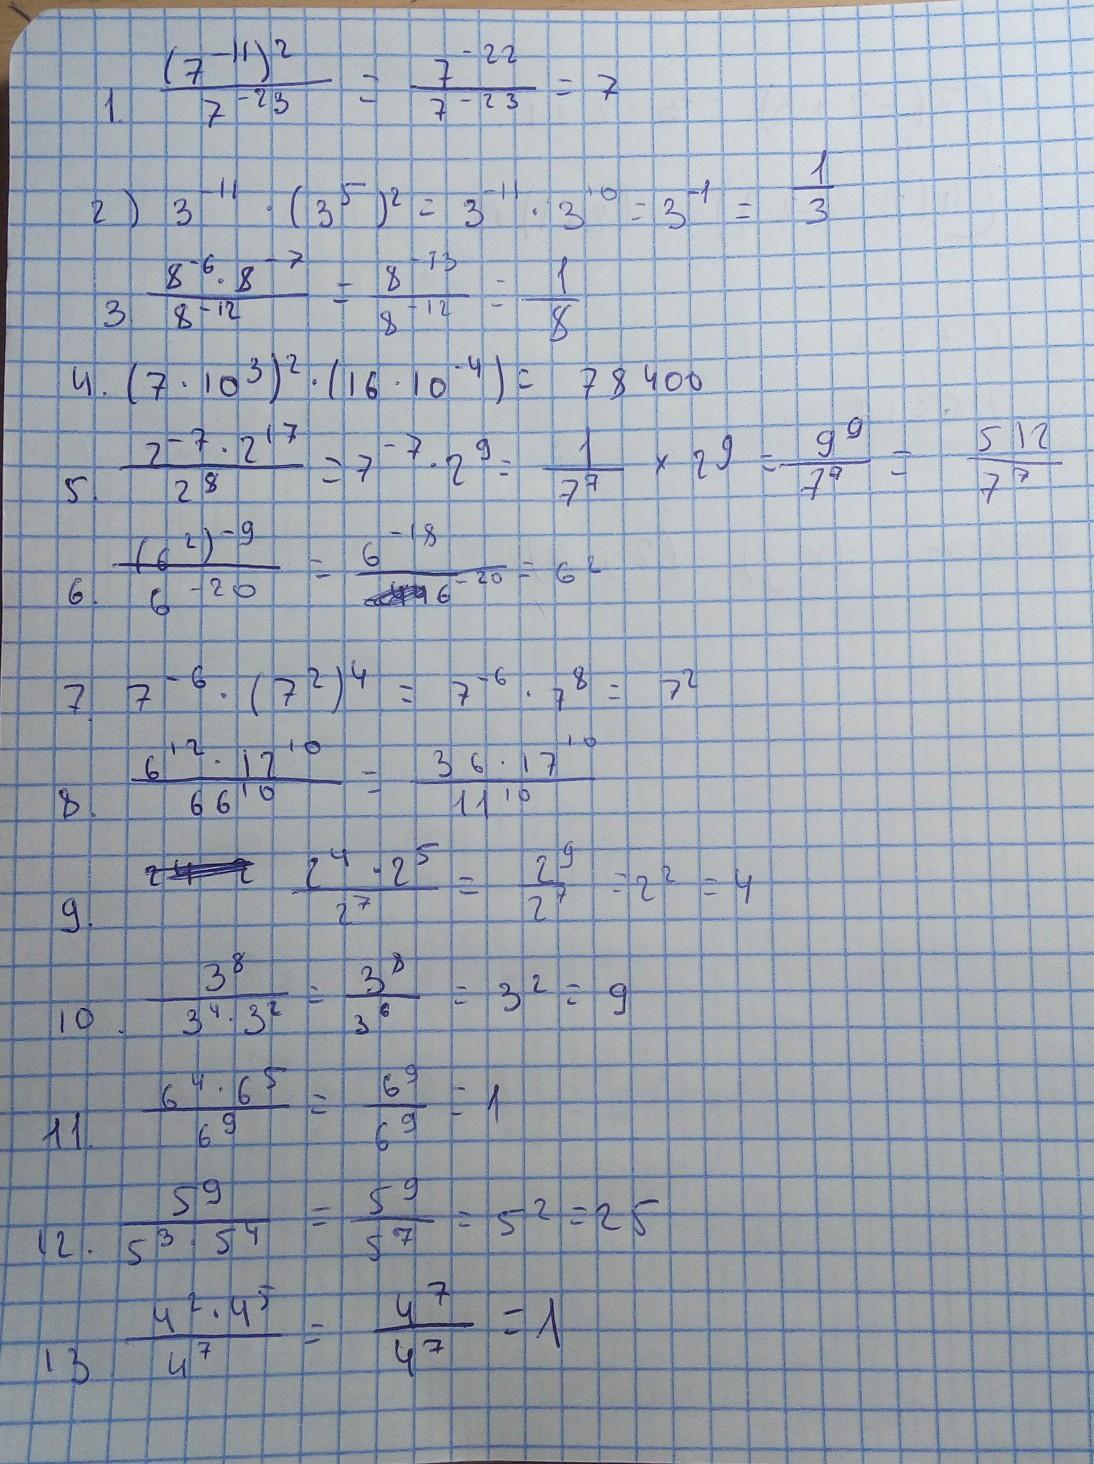 1. (7^-11)^2 / 7^-23 = 7^-22 / 7^-23 = 7
2) 3^-11 · (3^5)^2 = 3^-11 · 3^10 = 3^-1 = 1/3
3 8^-6 · 8^-7 / 8^-12 = 8^-13 / 8^-12 = 1/8
4. (7 · 10^3)^2 · (16 · 10^-4) = 78400
5. 2^-7 · 2^17 / 2^8 = 7^-7 · 2^9 = 1/7^7 × 2^9 = 9^9 / 7^7 = 512 / 7^7
6. (6^2)^-9 / 6^-20 = 6^-18 / 6^-20 = 6^2
7. 7^-6 · (7^2)^4 = 7^-6 · 7^8 = 7^2
8. 6^12 · 17^10 / 66^10 = 36 · 17^10 / 11^10
9. 2^4 · 2^5 / 2^7 = 2^9 / 2^7 = 2^2 = 4
10. 3^8 / 3^4 · 3^2 = 3^8 / 3^6 = 3^2 = 9
11. 6^4 · 6^5 / 6^9 = 6^9 / 6^9 = 1
12. 5^9 / 5^3 · 5^4 = 5^9 / 5^7 = 5^2 = 25
13 4^2 · 4^5 / 4^7 = 4^7 / 4^7 = 1